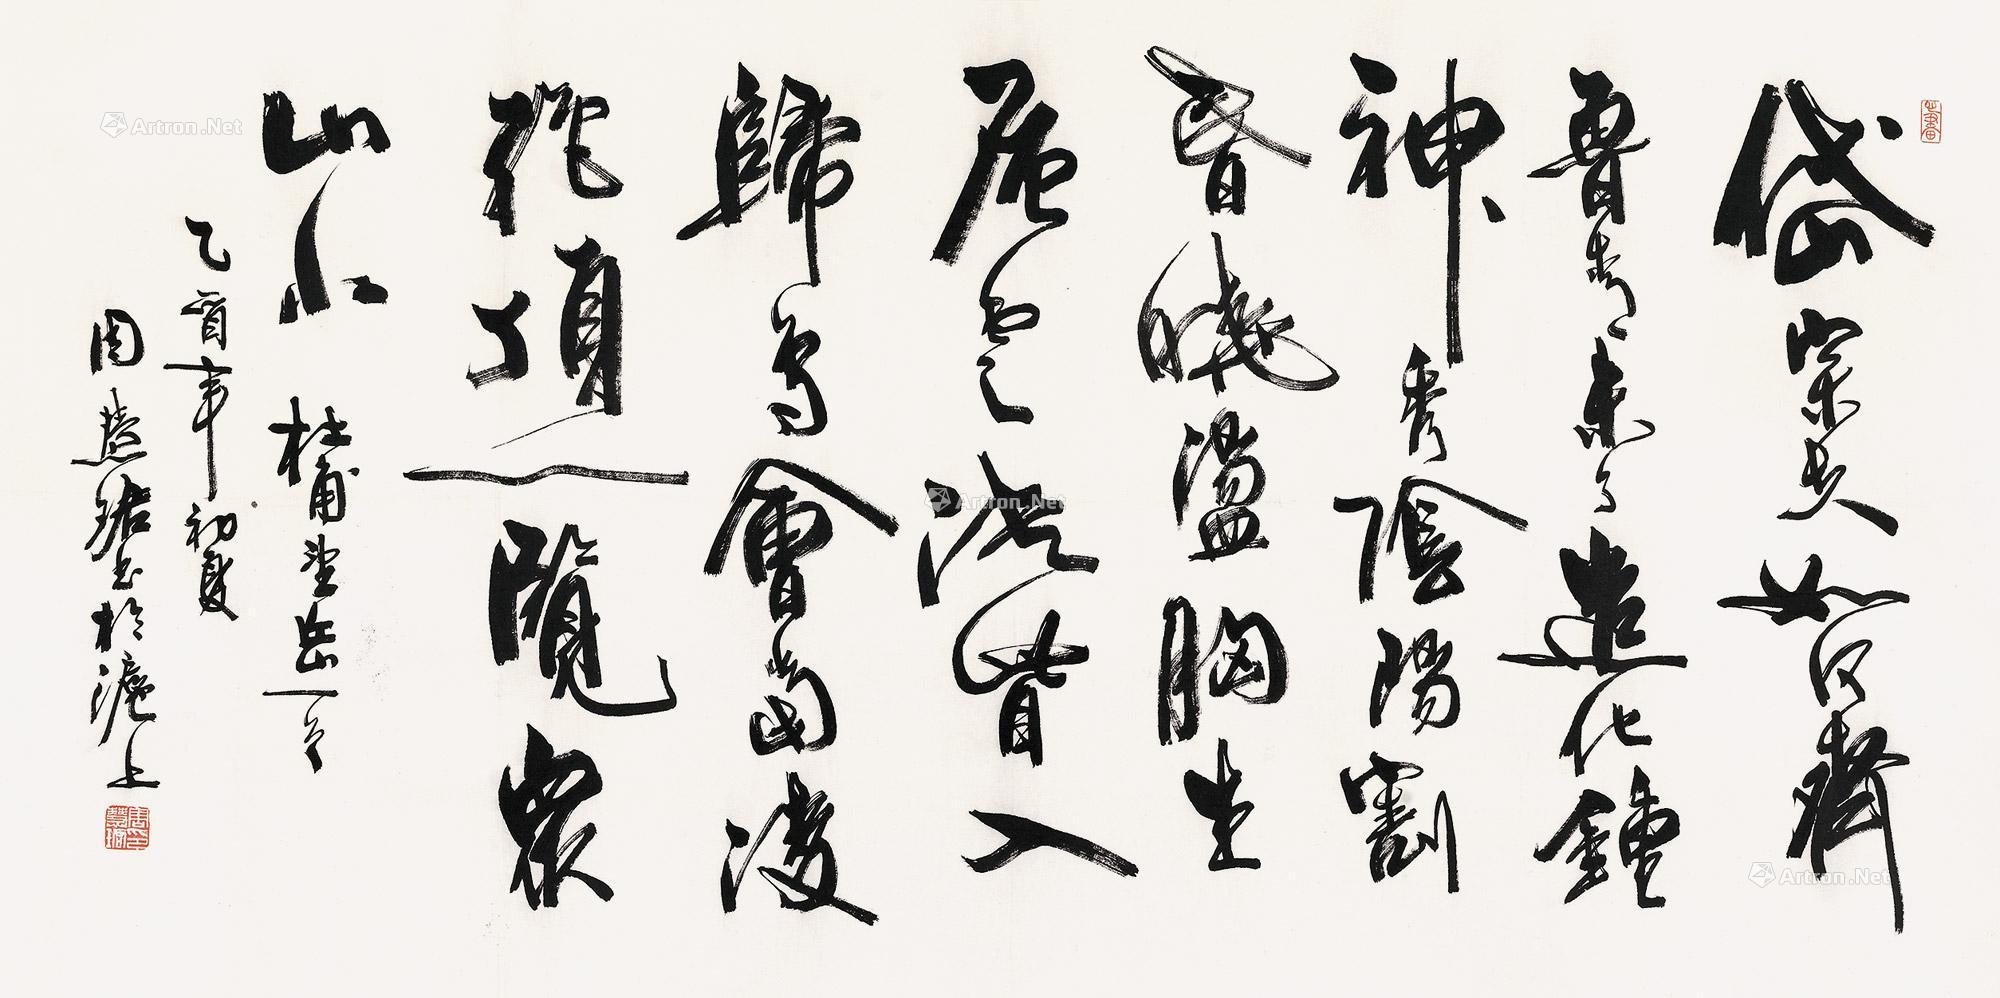 岱宗夫如何齊
魯青未了造化鍾
神秀陰陽割
昏曉盪胸生
層雲決眥入
歸鳥會當凌
絕頂一覽眾
山小 杜甫望岳一首
乙酉年初夏
周慧珺書於滬上
Artron.Net
Artron.Net
Artron.Net